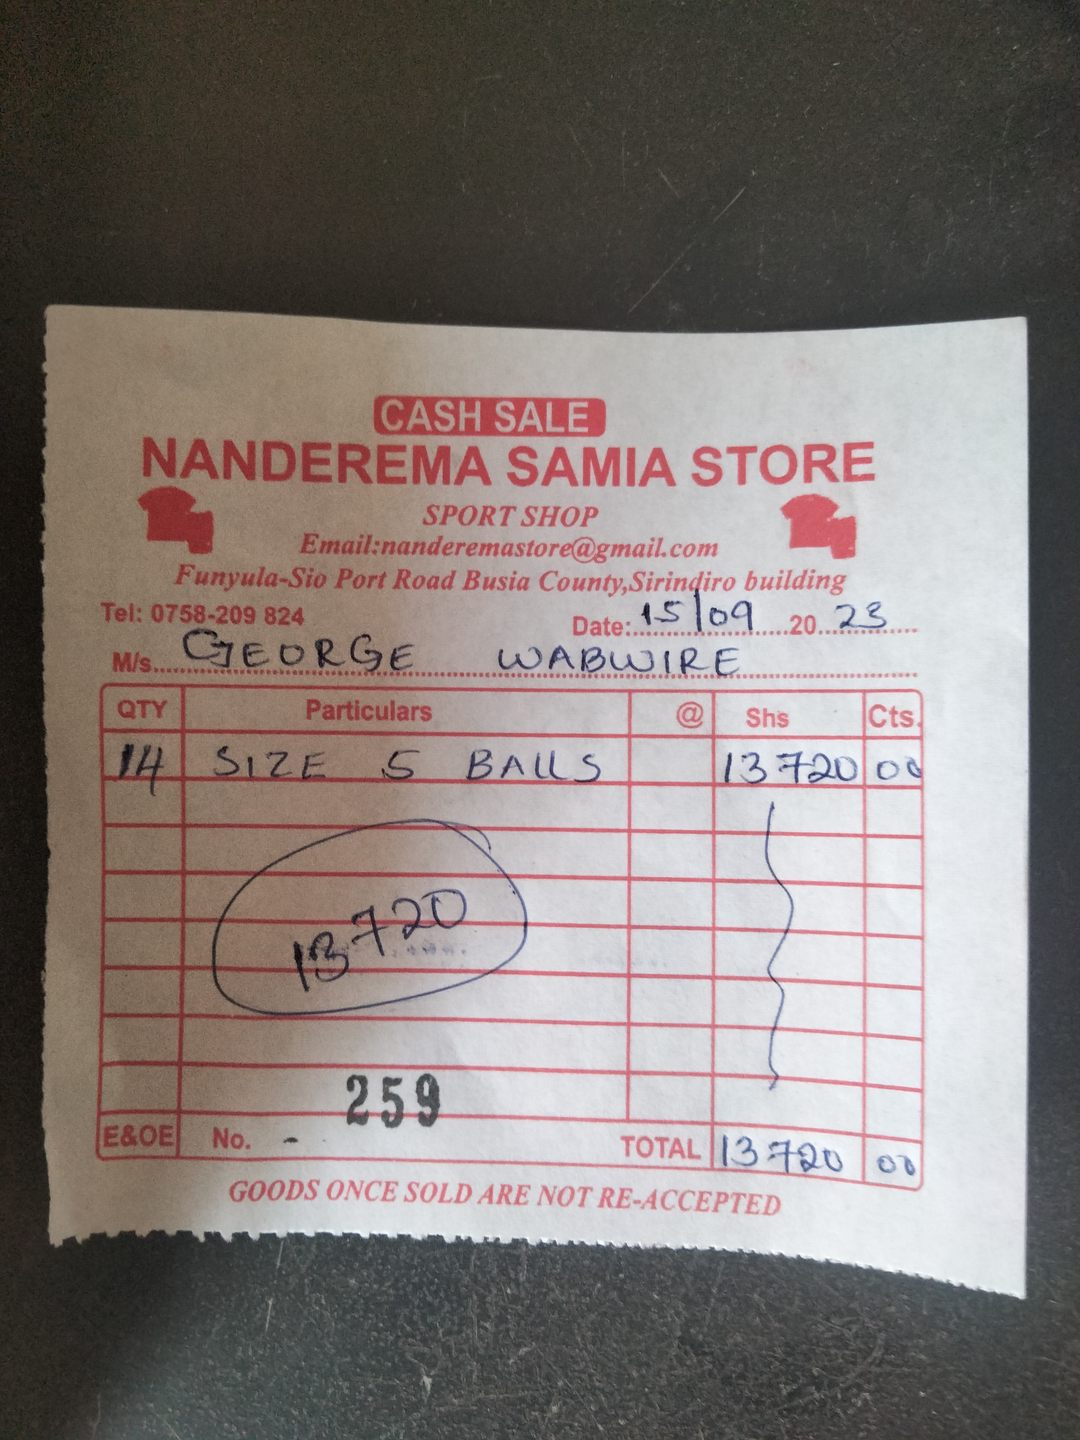 CASH SALE
NANDEREMA SAMIA STORE
SPORT SHOP
Email:nanderemastore@gmail.com
Funyula-Sio Port Road Busia County,Sirindiro building
Tel: 0758-209 824 Date: 15/09 20 23
M/s. GEORGE WABWIRE
QTY Particulars @ Shs Cts.
14 SIZE 5 BALLS 13720 00
13720
259
E&OE No. - TOTAL 13720 00
GOODS ONCE SOLD ARE NOT RE-ACCEPTED